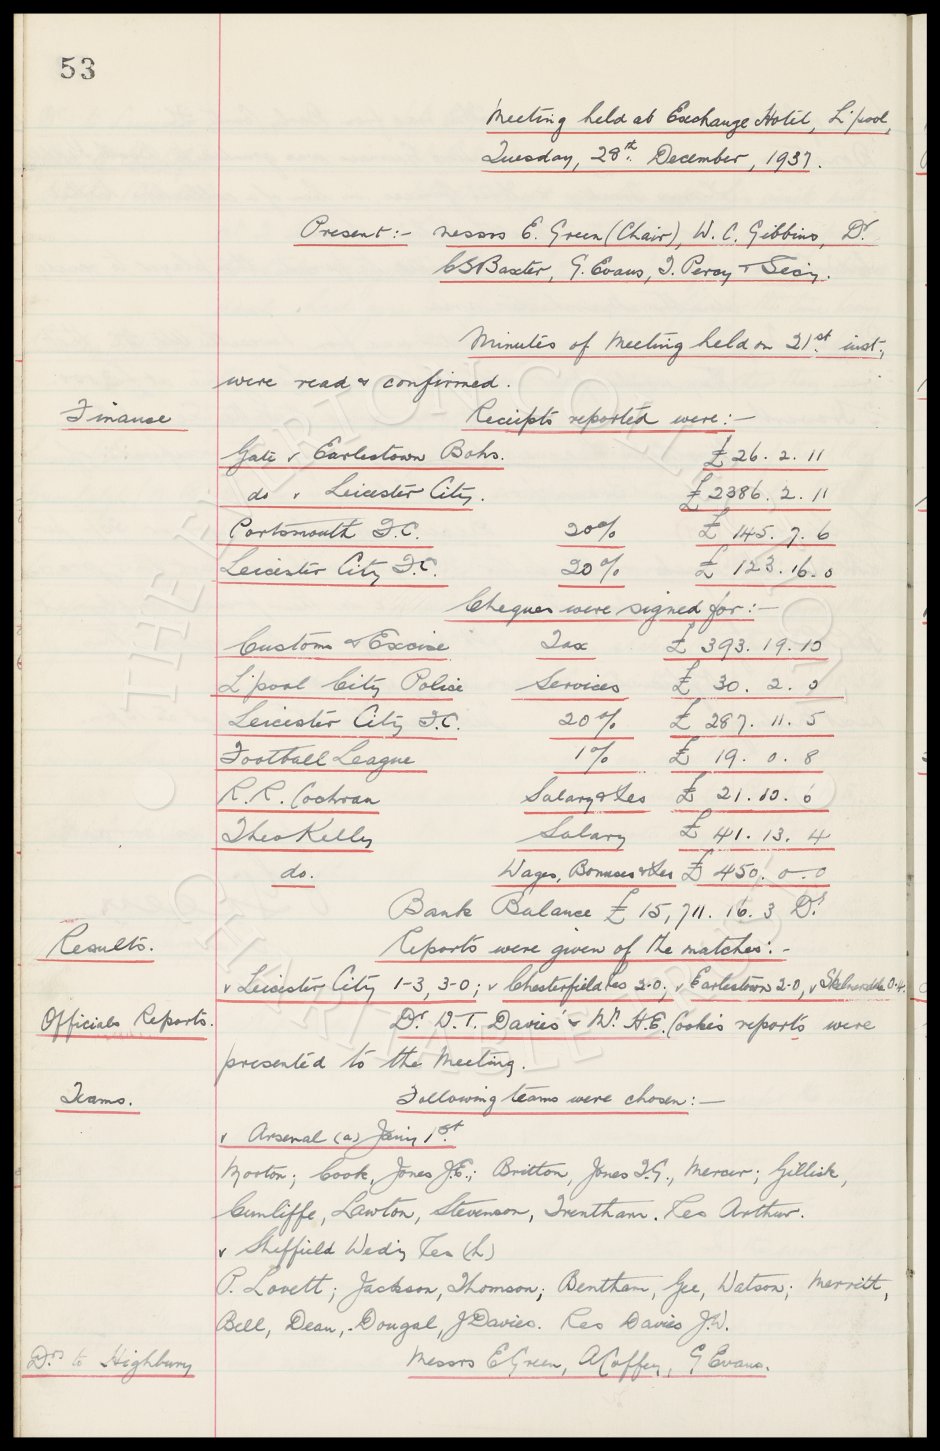 53
Meeting held at Exchange Hotel, L'pool,
Tuesday, 28th December, 1937.
Present:- Messrs E. Green (Chair), W. C. Gibbins, Dr
CS Baxter, G. Evans, J. Percy & Secy.
Minutes of Meeting held on 21st inst.,
were read & confirmed.
Finance Receipts reported were:-
Gate v Earlestown Bohs. £26. 2. 11
do v Leicester City. £2386. 2. 11
Portsmouth F.C. 20% £145. 7. 6
Leicester City F.C. 20% £123. 16. 0
Cheques were signed for:-
Customs & Excise Tax £393. 19. 10
L'pool City Police Services £30. 2. 0
Leicester City F.C. 20% £287. 11. 5
Football League 1% £19. 0. 8
R. R. Cochran Salary & Exs £21. 10. 0
Theo Kelly Salary £41. 13. 4
do. Wages, Bonuses & Exs £450. 0. 0
Bank Balance £15,711. 16. 3 Dr
Results. Reports were given of the matches:-
v Leicester City 1-3, 3-0; v Chesterfield Res 2-0; v Earlestown 2-0, v 0-4.
Officials Reports. Dr D. T. Davies' & Mr H. E. Cooke's reports were
presented to the Meeting.
Teams. Following teams were chosen:-
v Arsenal (a) Jany 1st.
Morton; Cook, Jones J.E.; Britton, Jones T.G., Mercer; Gillick,
Cunliffe, Lawton, Stevenson, Trentham. Res Arthur.
v Sheffield Wedy Res (h)
P. Lovett; Jackson, Thomson; Bentham, Gee, Watson; Merritt,
Bell, Dean, Dougal, J Davies. Res Davies J.W.
Drs to Highbury Messrs E Green, A Coffey, G Evans.
© THE EVERTON COLLECTION CHARITABLE TRUST